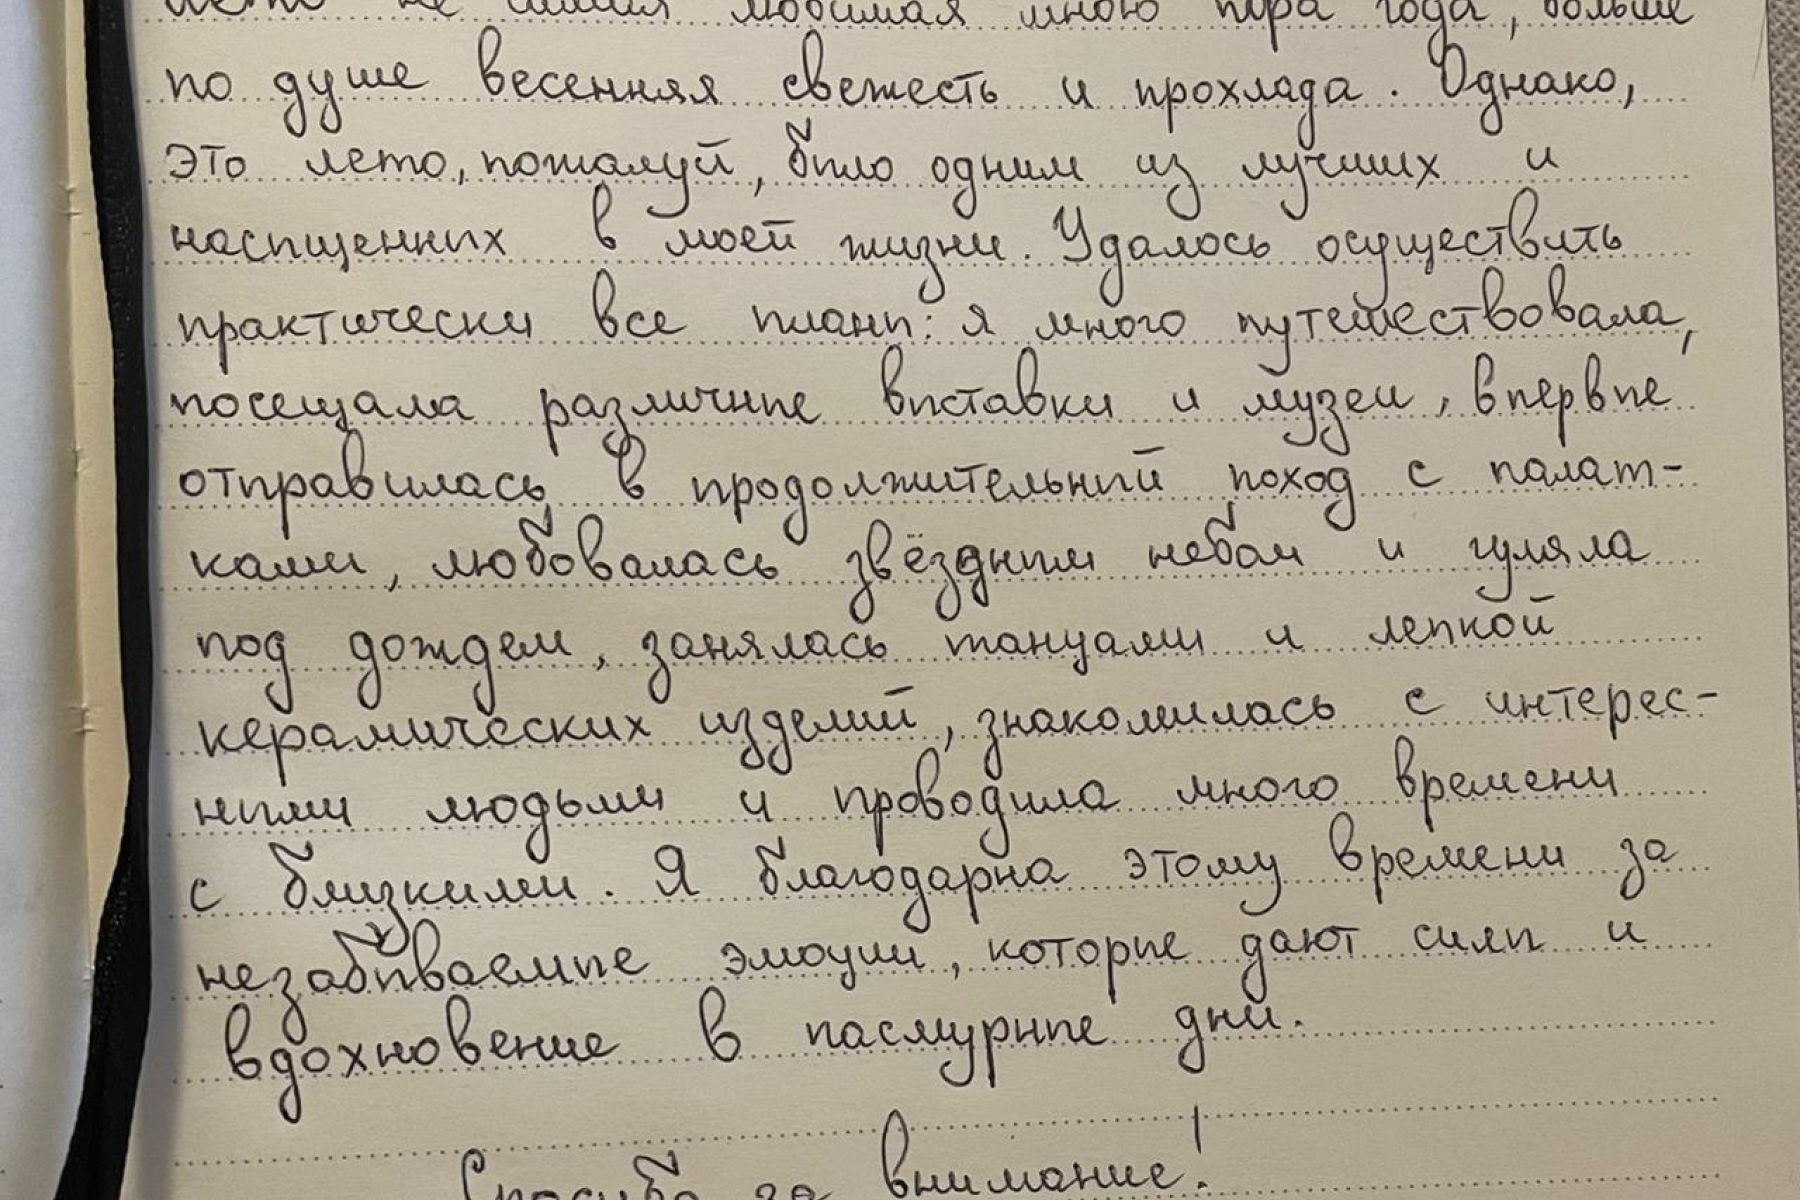 лето не самая любимая мною пора года, больше
по душе весенняя свежесть и прохлада. Однако,
это лето, пожалуй, было одним из лучших и
насыщенных в моей жизни. Удалось осуществить
практически все планы: я много путешествовала,
посещала различные выставки и музеи, впервые
отправилась в продолжительный поход с палат-
ками, любовалась звёздным небом и гуляла
под дождем, занялась танцами и лепкой
керамических изделий, знакомилась с интерес-
ными людьми и проводила много времени
с близкими. Я благодарна этому времени за
незабываемые эмоции, которые дают силы и
вдохновение в пасмурные дни.
Спасибо за внимание!